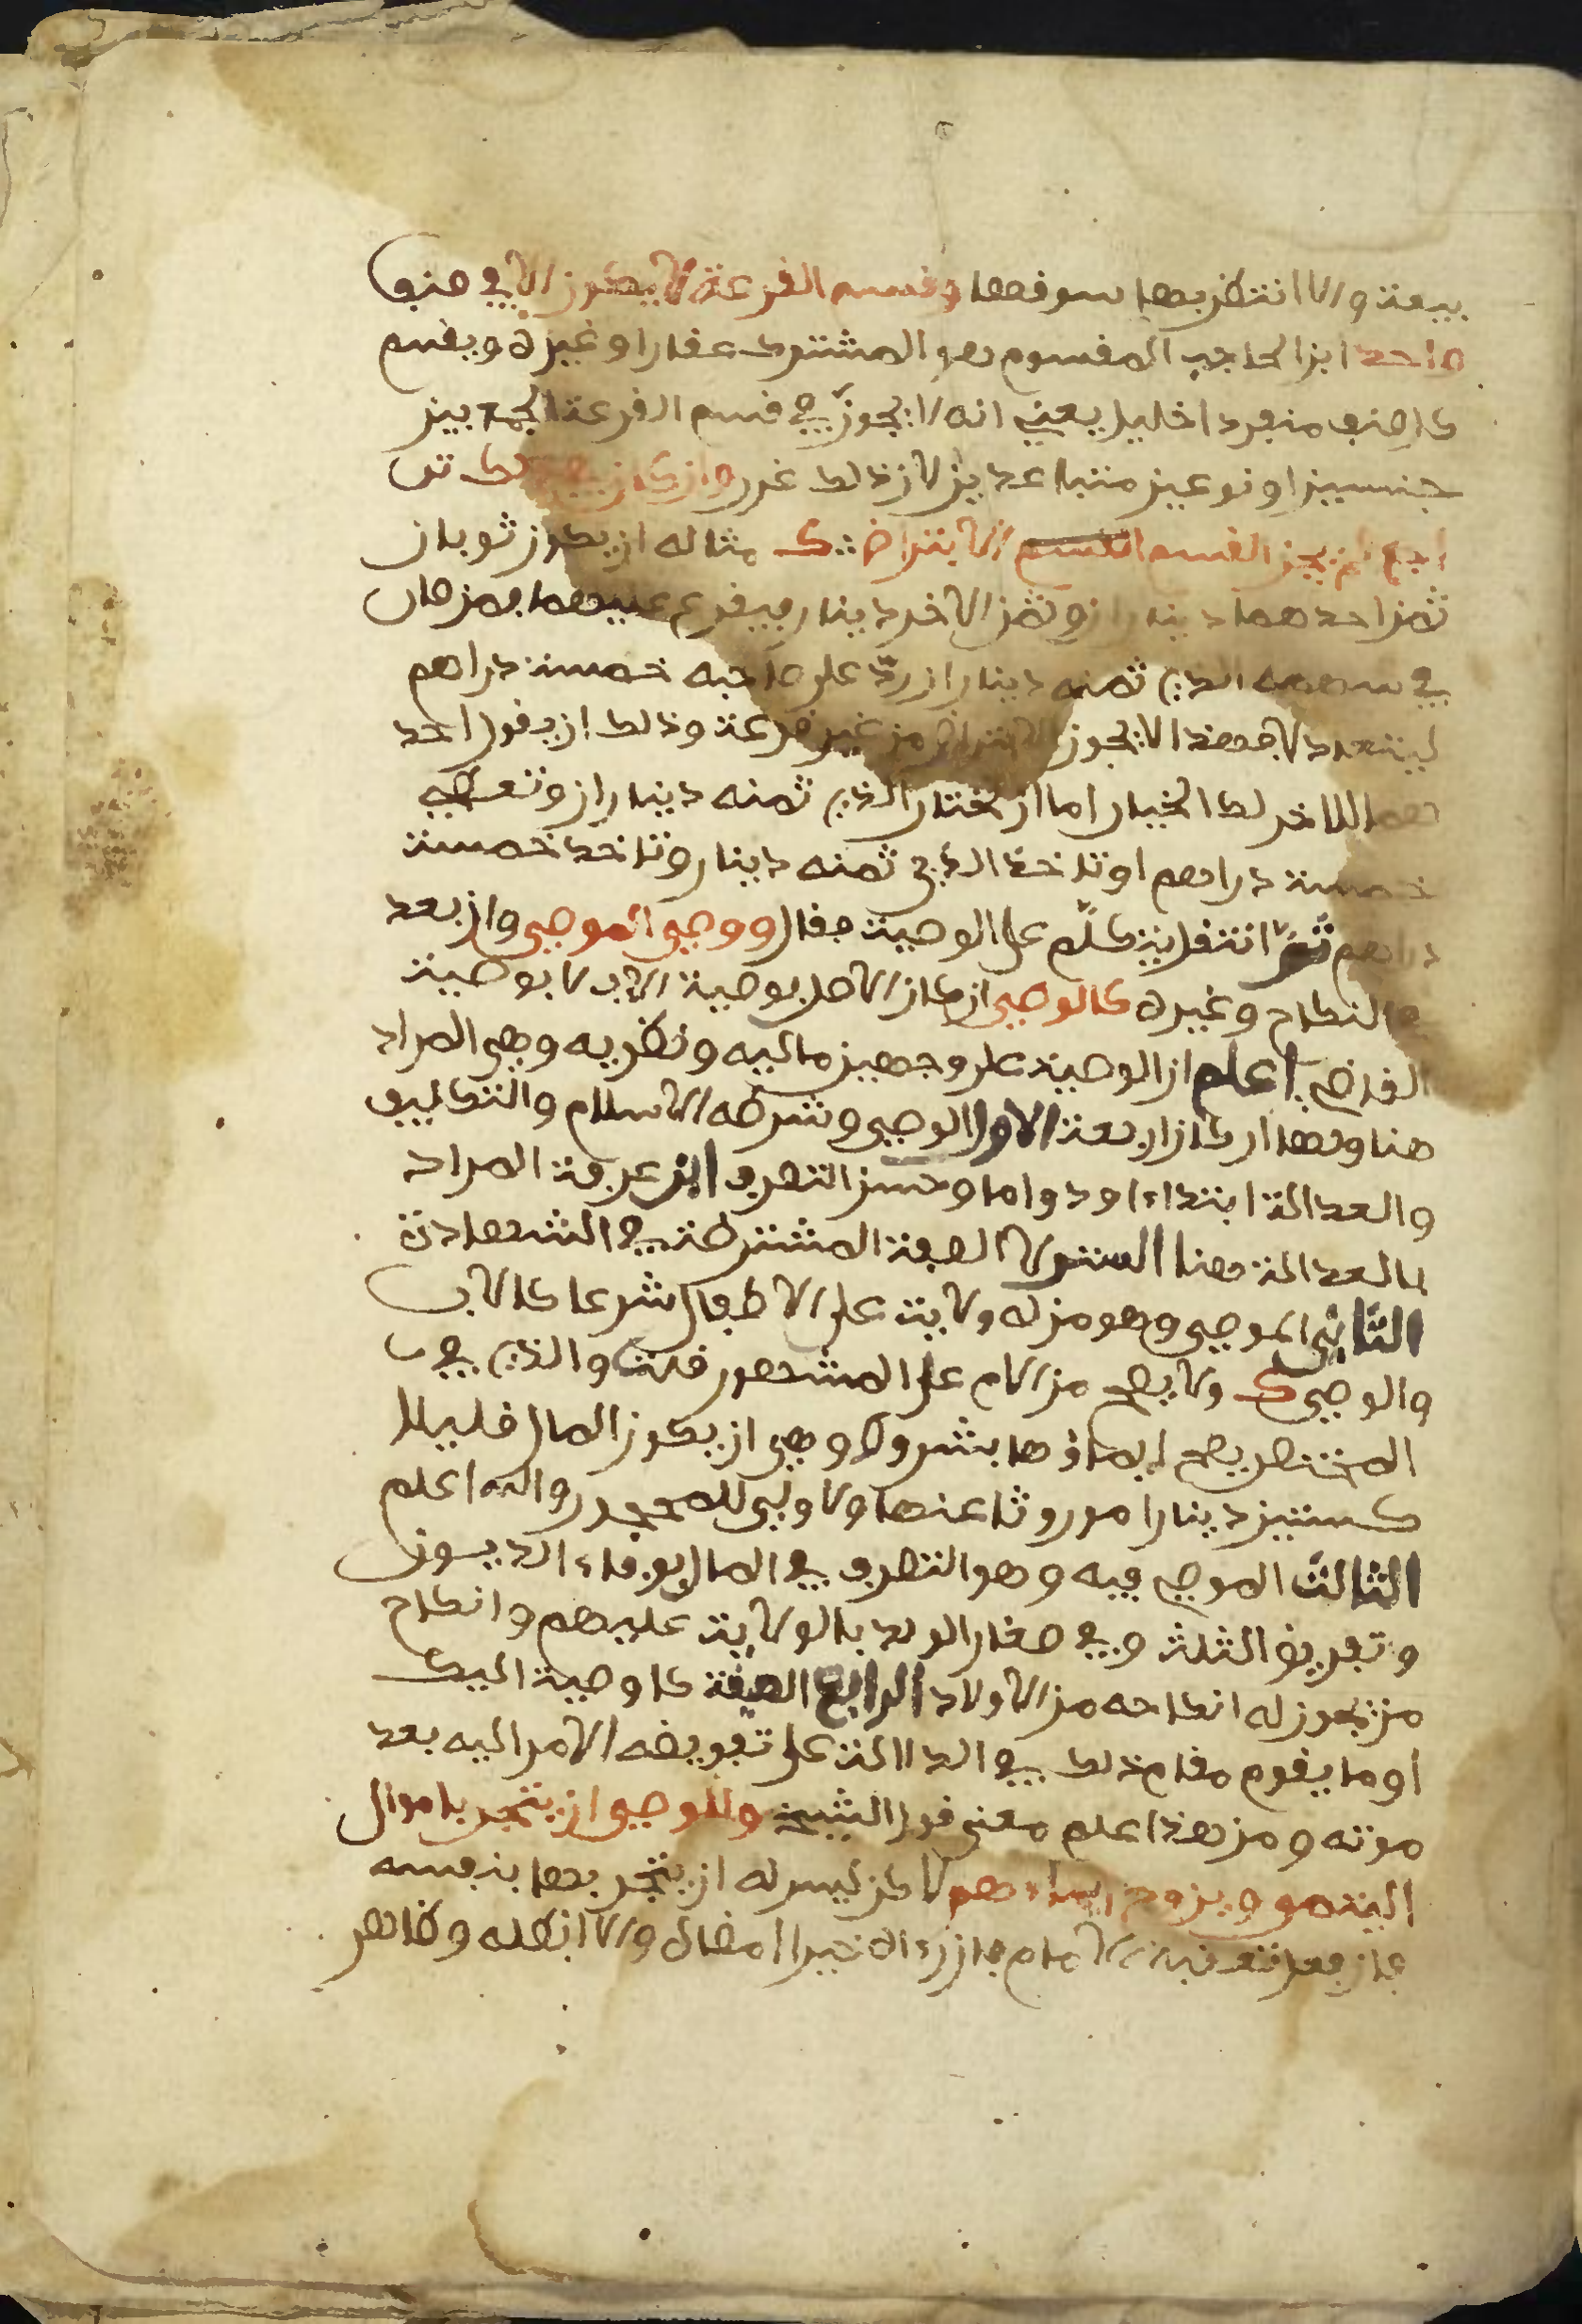 بيعت والا انتظر بها سوقها وقسم القرعة لا يكون الا في صنف
واحد ابن الحاجب المقسوم هو المشترك عقارا او غيره ويقسم
كل صنف منفردا خليل يعني انه لا يجوز في قسم القرعة الجمع بين
جنسين او نوعين متباعدين لان ذلك غرر وان كان في ذلك ترا
جع لم يجز القسم الا بتراض ك مثاله ان يكون ثوبان
ثمن احدهما ديناران وثمن الاخر دينار فيقرع عليهما فمن صار
في سهمه الذي ثمنه ديناران ردّ على صاحبه خمسة دراهم
ليتعدد لا فهذا لا يجوز الا بتراض من غير قرعة وذلك ان يقول احد
هما للاخر لك الخيار اما ان تختار الذي ثمنه ديناران وتعطيه
خمسة دراهم او تاخذ الذي ثمنه دينار وتاخذ خمسة
دراهم ثمّ انتقل يتكلّم على الوصية فقال ووصي الموصي وان بعد
في النكاح وغيره كالوصي ان كان الاصل بوصية الاب لا بوصية
القاضي اعلم ان الوصية على وجهين مالية ونظرية وهي المراد
هنا ولها اركان اربعة الاول الوصي وشرطه الاسلام والتكليف
والعدالة ابتداء ودواما وحسن التصرف ابن عرفة المراد
بالعدالة هنا الستر لا الصفة المشترطة في الشهادة
الثاني الموصي وهو من له ولاية على الاطفال شرعا كالاب
والوصي ك ولا يصح من الام على المشهور قلت والذي في
المختصر يصح ايصاؤها بشروط وهي ان يكون المال قليلا
كستين دينارا موروثا عنها ولا ولي للمحجور والله اعلم
الثالث الموصى فيه وهو التصرف في المال بوفاء الديون
وتفريق الثلث وفي صغار الولد بالولاية عليهم وانكاح
من يجوز له انكاحه من الاولاد الرابع الصيغة كاوصية اليك
او ما يقوم مقام ذلك في الدلالة على تفويض الامر اليه بعد
موته ومن هذا علم معنى قول الشيخ وللوصي ان يتجر باموال
اليتمى ويزوج اماءهم لاكن ليس له ان يتجر بها بنفسه
فان فعل تعقبه الامام فان رءاه خيرا امضاه والا ابطله وظاهر